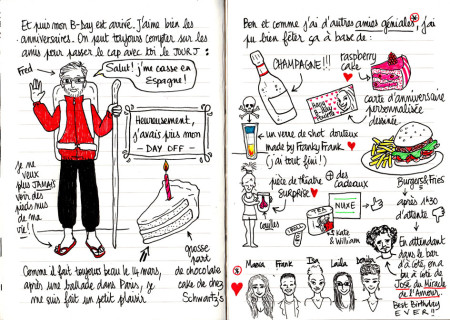 Et puis mon B-Day est arrivé. J'aime bien les
anniversaires. On peut toujours compter sur les
amis pour passer le cap avec toi le JOUR J :
Fred
Salut ! j'me casse en
Espagne !
Heureusement,
j'avais pris mon
- DAY OFF -
Je ne
veux
plus JAMAIS
voir des
pieds nus
de ma
vie !
grosse
part
de chocolate
cake de chez
Schwartz's
Comme il fait toujours beau le 14 mars,
après une ballade dans Paris, je
me suis fait un petit plaisir.
Ben et comme j'ai d'autres amies géniales*, j'ai
pu bien fêter ça à base de :
CHAMPAGNE!!!
raspberry
cake
carte d'anniversaire
personnalisée
dessinée.
un verre de shot douteux
made by Franky Frank
(j'ai tout fini !)
pièce de théatre
SURPRISE
des
cadeaux
NUXE
Kate
& William
Burgers & Fries
après 1H30
d'attente
En attendant
dans le bar
d'à côté, on a
bu à côté de
José du Miracle
de l'Amour.
Best Birthday
EVER !!
Frank
Isa
Laïla